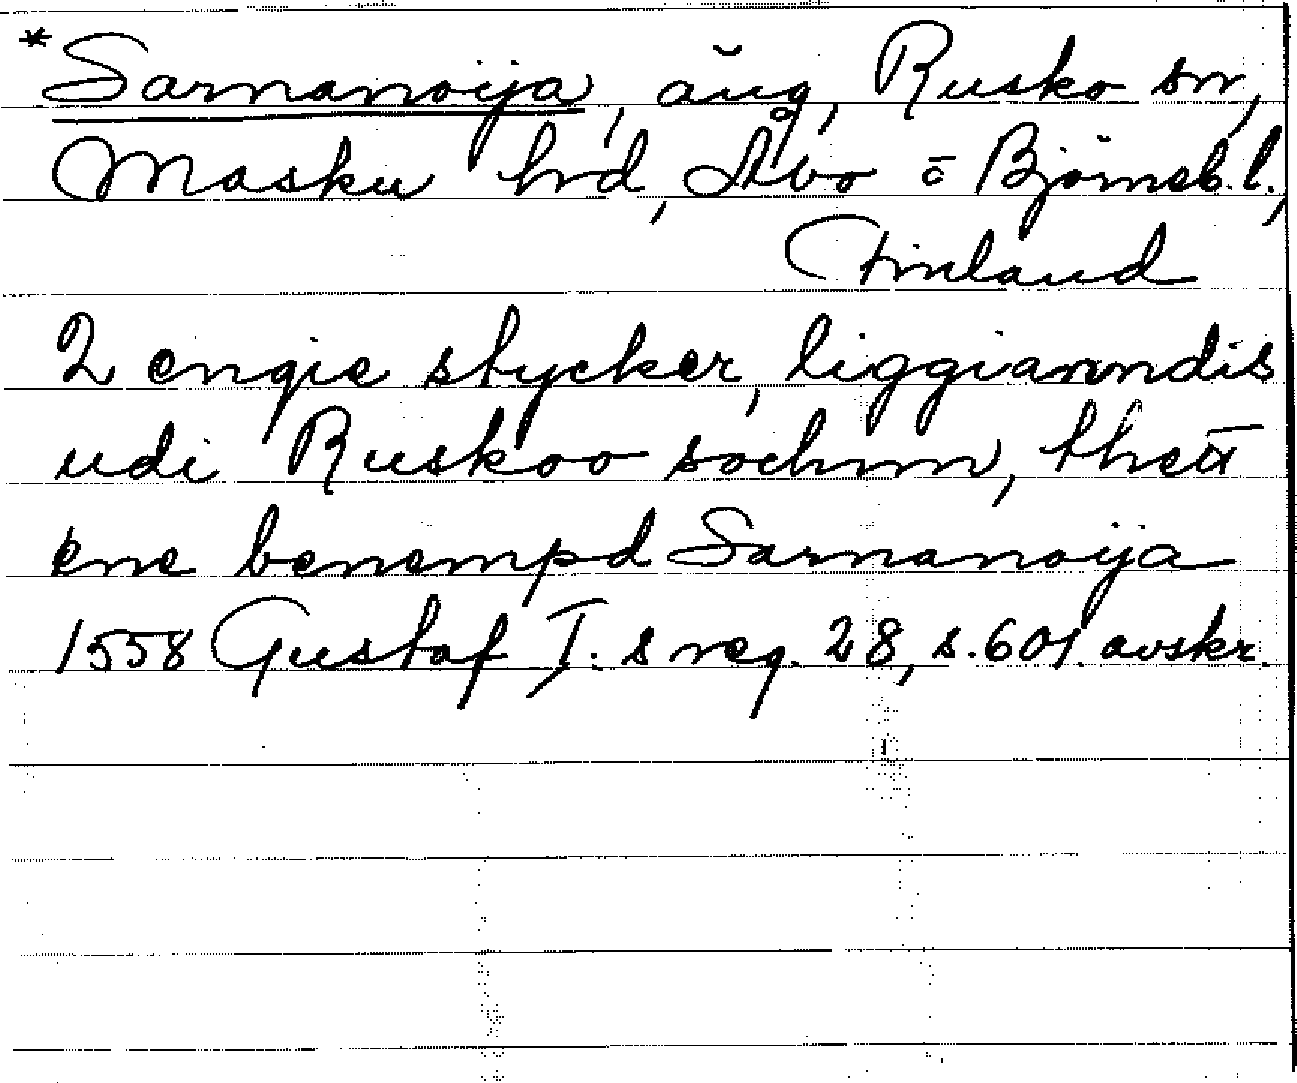 *Sarnanoija, äng, Rusko sn,
Masku hrd, Åbo o Björneb. l.,
Finland
2 engie stycker, liggianndis
udi Ruskoo sochnn, thett
ene benempd Sarnanoija
1558 Gustaf I:s reg. 28, s. 601. avskr.